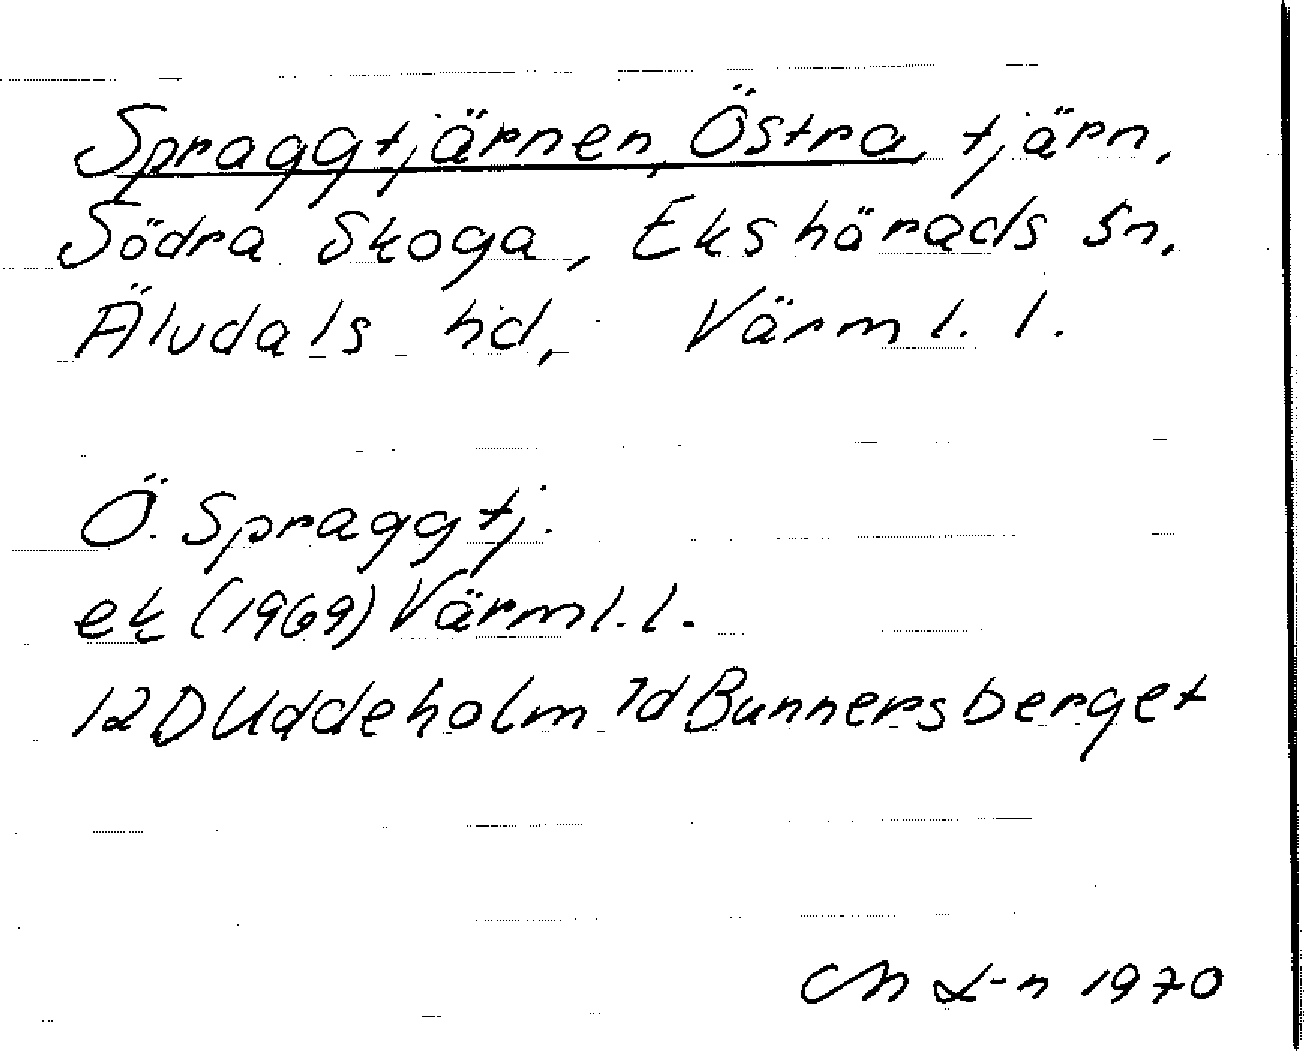 Spraggtjärnen, Östra, tjärn,
Södra Skoga, Ekshärads sn,
Älvdals hd, Värml. l.
Ö. Spraggtj.
ek (1969) Värml. l.
12D Uddeholm 7d Bunnersberget
1970